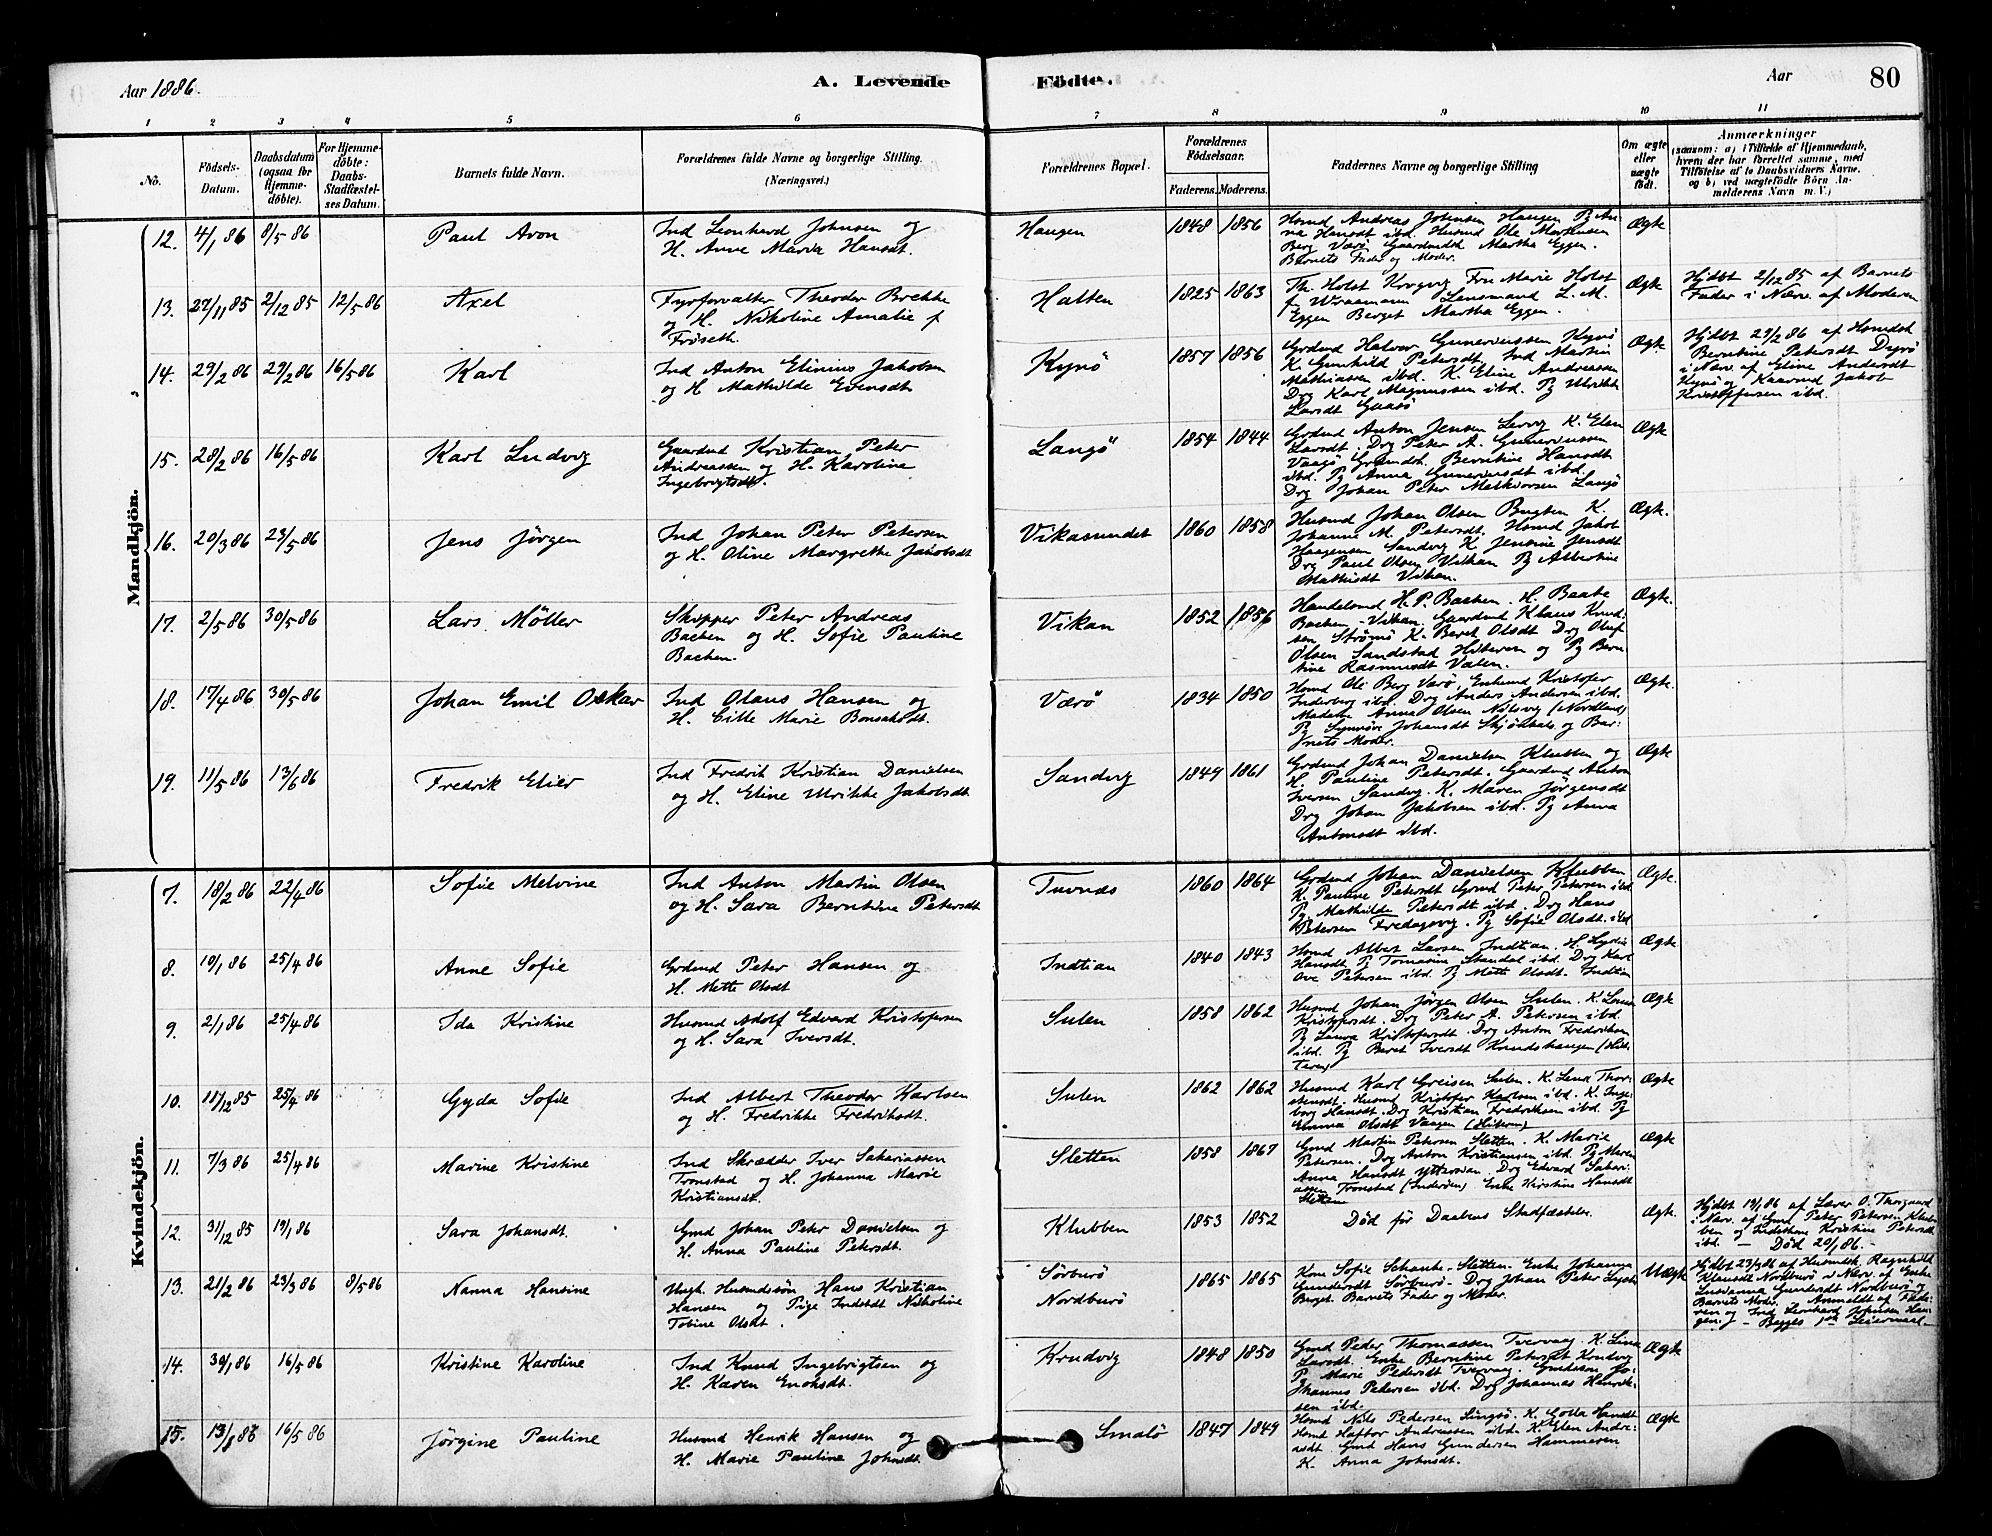 Aar 1886.
A. Levende Födte.
Aar
80
1 2 3 4 5 6 7 8 9 10 11
No.
Födsels-Datum.
Daabsdatum (ogsaa for Hjemme-döbte).
For Hjemme-döbte: Daabs-Stadfæstel-ses Datum.
Barnets fulde Navn.
Forældrenes fulde Navne og borgerlige Stilling.
(Næringsvei.)
Forældrenes Bopæl.
Forældrenes Födselsaar.
Faderens. Moderens.
Faddernes Navne og borgerlige Stilling
Om ægte eller uægte födt.
Anmærkninger
(saasom: a) i Tilfælde af Hjemmedaab,
hvem der har forrettet samme, med
Tilföielse af to Daabsvidners Navne.
og b) ved uægtefödte Börn An-
melderens Navn m. V.)
Mandkjön.
12. 4/1 86 8/5 86 Paul Aron
Ind Leonhard Johnsen og
H. Anne Maria Hansdt.
Haugen 1848 1856
Husmd Andreas Johnsen Haugen Pg An-
na Hansdt ibd. Husmd Ole Mortensen
Berg Værö Gaardmdt Martha Eggen.
Barnets Fader og Moder.
Ægte
13. 27/11 85 2/12 85 12/5 86 Axel
Fyrforvalter Theodor Brekke
og H. Nikoline Amalie f
Fröseth.
Halten 1825 1863
Th. Holst Krogvig Fru Marie Holst
f. Lensmand L. M.
Eggen Berget Martha Eggen.
Ægte
Hjdbt 2/12 85 af Barnets
Fader i Nærv. af Moderen
14. 29/2 86 29/2 86 16/5 86 Karl
Ind Anton Elinius Jakobsen
og H Mathilde Evensdt
Kynö 1857 1856
Grdmd Halvor Gunerinssen Kynö
K. Gunhild Petersdt. Ind Martin
Mathiassen ibd. K. Eline Andreassen
Drg Karl Magnussen ibd. Pg Ulrikke
Larsdt Gaasö
Ægte.
Hjdbt 29/2 86 af Husmdsk
Berntine Petersdt Dyrö
i Nærv. af Eline Andersdt
Kynö og Kaarmd Jakob
Kristoffersen ibd.
15. 28/2 86 16/5 86 Karl Ludvig
Gaardmd Kristian Peter
Andreassen og H. Karoline
Ingebrigtsdt.
Langö 1854 1844
Grdmd Anton Jensen Lervg K. Elen
Larsdt. Drg Peter A. Gunerinssen
Vaagö Grdmdst. Berntine Hansdt
ibd. Pg Anna Gunerinsdt ibd.
Drg Johan Peter Melkiorsen Langö
Ægte
16. 20/3 86 23/5 86 Jens Jörgen
Ind Johan Peter Petersen
og H. Oline Margrethe Jakobsdt
Vikasundet 1860 1858
Husmd Johan Olsen Bugten K.
Johanna M. Petersdt. Husmd Jakob
Haagensen Sandvg K. Jensine Jensdt
Drg Paul Olsen Vikan Pg Albertine
Mathisdt Vikan.
Ægte.
17. 2/5 86 30/5 86 Lars Möller
Skipper Peter Andreas
Bachen og H. Sofie Pauline
Bachen.
Vikan 1852 1856
Handelsmd H. P. Bachen. H. Beate
Bachen - Vikan. Gaardmd Klaus Knud-
sen Strömö K. Beret Olsdt Drg Oluf
Olsen Sandstad Hiteren og Pg Bern-
tine Rasmusdt Valen.
Ægte.
18. 17/4 86 30/5 86 Johan Emil Oskar
Ind Olaus Hansen og
H. Cille Marie Bonsdt.
Værö 1834 1850
Husmd Ole Berg Værö. Enkemd Kristofer
Inderberg ibd. Drg Anders Andersen ibd.
Madske Anna Olsen (Nordland)
Pg Synnöve Johansdt og Bar-
nets Moder.
Ægte.
19. 11/5 86 13/6 86 Fredrik Elier
Ind Fredrik Kristian Danielsen
og H. Eline Ulrikke Jakobsdt
Sandvg 1849 1861
Grdmd Johan Danielsen Klubben og
H. Pauline Petersdt. Gaardmd Anton
Iversen Sandvg. K. Maren Jörgensdt
Drg Johan Jakobsen ibd. Pg Anna
Antonsdt ibd.
Ægte
Kvindekjön.
7. 18/2 86 22/4 86 Sofie Melvine
Ind Anton Martin Olsen
og H. Sara Berntine Petersdt
Tuvnæs 1860 1864
Grdmd Johan Danielsen Klubben
K. Pauline Petersdt Grmd Peter Petersen ibd
Pg Mathilde Petersdt ibd. Drg Hans
Petersen Fredagsvg. Pg Sofie Olsdt. ibd
Ægte.
8. 19/1 86 25/4 86 Anne Sofie
Grdmd Peter Hansen og
H. Mette Olsdt
Indtian 1840 1843
Husmd Albert Larsen Indtian. H. Lydia
Hansdt Pg Tomasine Skardal ibd. Drg Karl
Ove Petersen ibd Pg Mette Olsdt. Indtian
Ægte
9. 2/1 86 25/4 86 Ida Kristine
Husmd Adolf Edvard Kristofersen
og H. Sara Iversdt.
Sulen 1858 1862
Husmd Johan Jörgen Olsen Sulen. K. Lovise
Kristofersdt. Drg Peter A. Petersen ibd.
Pg Laura Kristofersdt. Drg Anton Fredriksen
ibd. Pg Beret Iversdt Knudshaugen (Hit-
teren)
Ægte
10. 11/12 85 25/4 86 Gyda Sofie
Ind Albert Theodor Karlsen
og H. Fredrikke Fredriksdt.
Sulen 1862 1862
Husmd Karl Greisen Sulen. K. Lena Thor-
stensdt. Husmd Kristofer Karlsen ibd. K. Inge-
borg Hansdt. Drg Kristian Fredriksen ibd. Pg
Emma Olsdt Vaagen (Hiteren)
Ægte
11. 7/3 86 25/4 86 Marine Kristine
Ind Skrædder Iver Sakariassen
Tronstad og H. Johanna Marie
Kristiansdt.
Sletten 1858 1867
Gmd Martin Petersen Sletten. K. Marie
Petersen. Drg Anton Kristiansen ibd. Pg Maren
Anna Hansdt Ytterøian. Drg Edvard Sakari-
assen Tronstad (Inderøen) Enke Kirstine Hansdt
Sletten
Ægte
12. 31/12 85 19/1 86 Sara Johansdt.
Gmd Johan Peter Danielsen og
H. Anna Pauline Petersdt.
Klubben 1853 1852
Död för Daabens Stadfæstelse.
Ægte.
Hjdbt 19/1 86 af Lærer O. Thorgaard
i Nærv. af Gmd Peter Petersen Klub-
ben og Kristine Petersdt
ibd. – Död 20/1 86. –
13. 21/2 86 23/3 86 8/5 86 Nanna Hansine
Ungk. Husmdssön Hans Kristian
Hansen og Pige Indstdt Nikoline
Tobine Olsdt.
Sörburö
Nordburö
1865 1865
Kone Sofie Schanke - Sletten. Enke Johanna
Gundersdt Sörburö - Drg Johan Peter
Berget. Barnets Fader og Moder.
Uægte
Hjdbt 23/3 86 af Husmdsk. Ragnhild
Klausdt Nordburö i Nærv. af Enke
Susanna Gundersdt Nordburö og
Barnets Moder. Anmeldt af Fade-
ren og Ind Leonhard Johnsen Hau-
gen. – Begges 1ste Leiermaal –
14. 30/1 86 16/5 86 Kristine Karoline
Ind Knud Ingebrigtsen og
H. Karen Enoksdt.
Knudvig 1848 1850
Gmd Peder Thomassen Tvervaag. K. Lina
Larsdt. Enke Berntine Petersdt Knudvg
P. Marie Pedersdt Tvervaag. Gmdssön Jo-
hannes Pedersen ibd. Drg Johannes Henrik-
sen ibd.
Ægte
15. 13/1 86 16/5 86 Jörgine Pauline
Husmd Henrik Hansen og
H. Marie Pauline Johnsdt.
Smalö 1847 1849
Husmd Nils Pedersen Lingsö. K. Golla Hansdt
Husmd Haftor Andreassen ibd. K. Elen Andre-
asdt. Gmd Hans Gundersen Hammeren
K. Anna Johnsdt.
Ægte